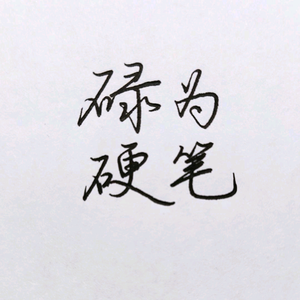 碌为
硬笔